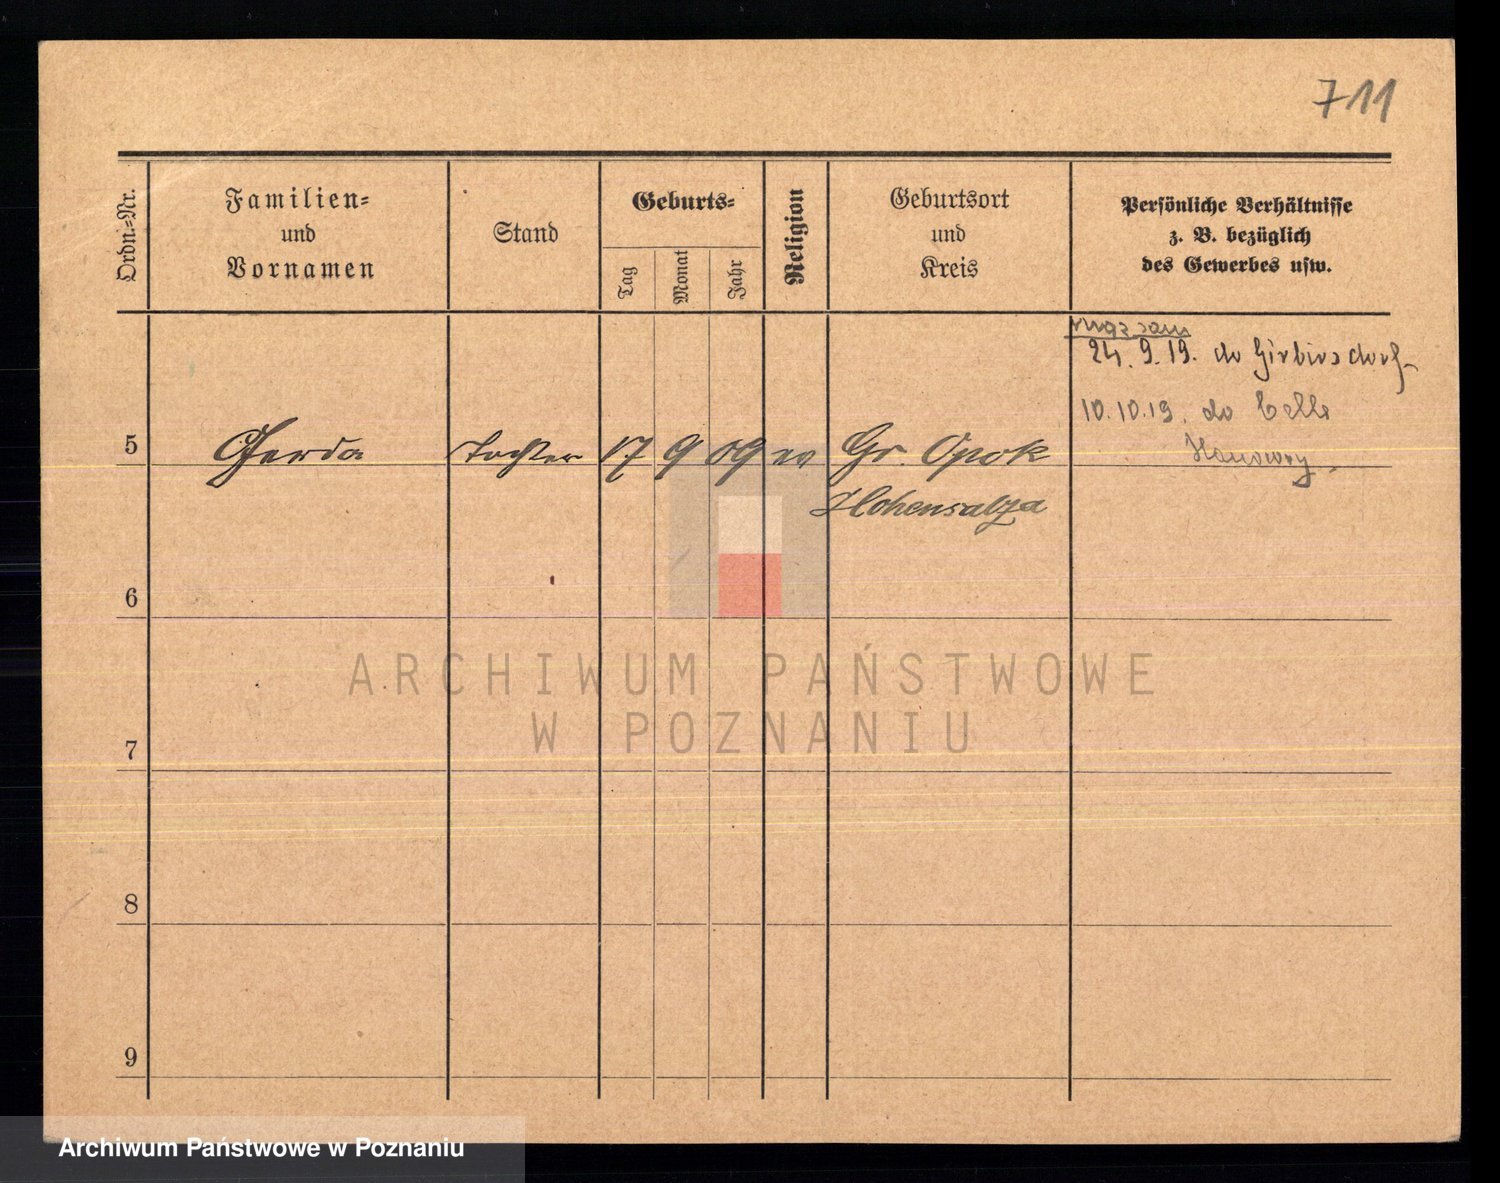 711
Ordn.=Nr.
Familien=
und
Vornamen
Stand
Geburts=
Tag
Monat
Jahr
Religion
Geburtsort
und
Kreis
Persönliche Verhältnisse
z. B. bezüglich
des Gewerbes usw.
24. 9. 19. do
10.10.19. do Celle
5 Gerda Tochter 17 9 09 ev Gr. Opok
Hohensalza
6
ARCHIWUM PAŃSTWOWE
W POZNANIU
7
8
9
Archiwum Państwowe w Poznaniu